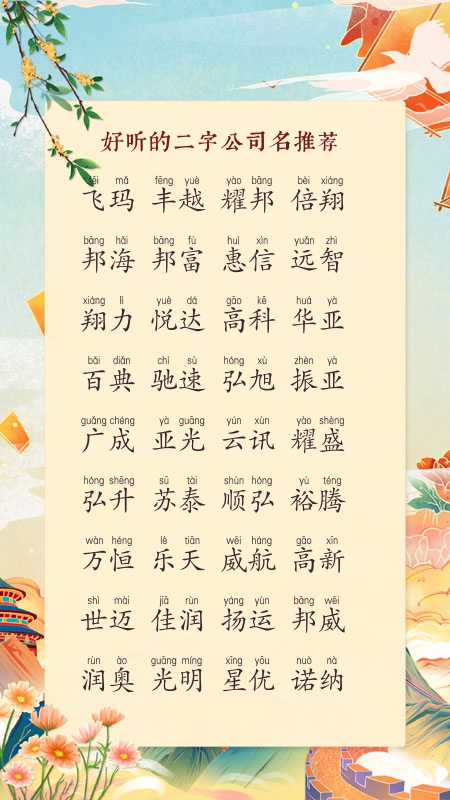 好听的二字公司名推荐
fēi mǎ fēng yuè yào bāng bèi xiáng
飞玛 丰越 耀邦 倍翔
bāng hǎi bāng fù huì xìn yuǎn zhì
邦海 邦富 惠信 远智
xiáng lì yuè dá gāo kē huá yà
翔力 悦达 高科 华亚
bǎi diǎn chí sù hóng xù zhèn yà
百典 驰速 弘旭 振亚
guǎng chéng yà guāng yún xùn yào shèng
广成 亚光 云讯 耀盛
hóng shēng sū tài shùn hóng yù téng
弘升 苏泰 顺弘 裕腾
wàn héng lè tiān wēi háng gāo xīn
万恒 乐天 威航 高新
shì mài jiā rùn yáng yùn bāng wēi
世迈 佳润 扬运 邦威
rùn ào guāng míng xīng yōu nuò nà
润奥 光明 星优 诺纳